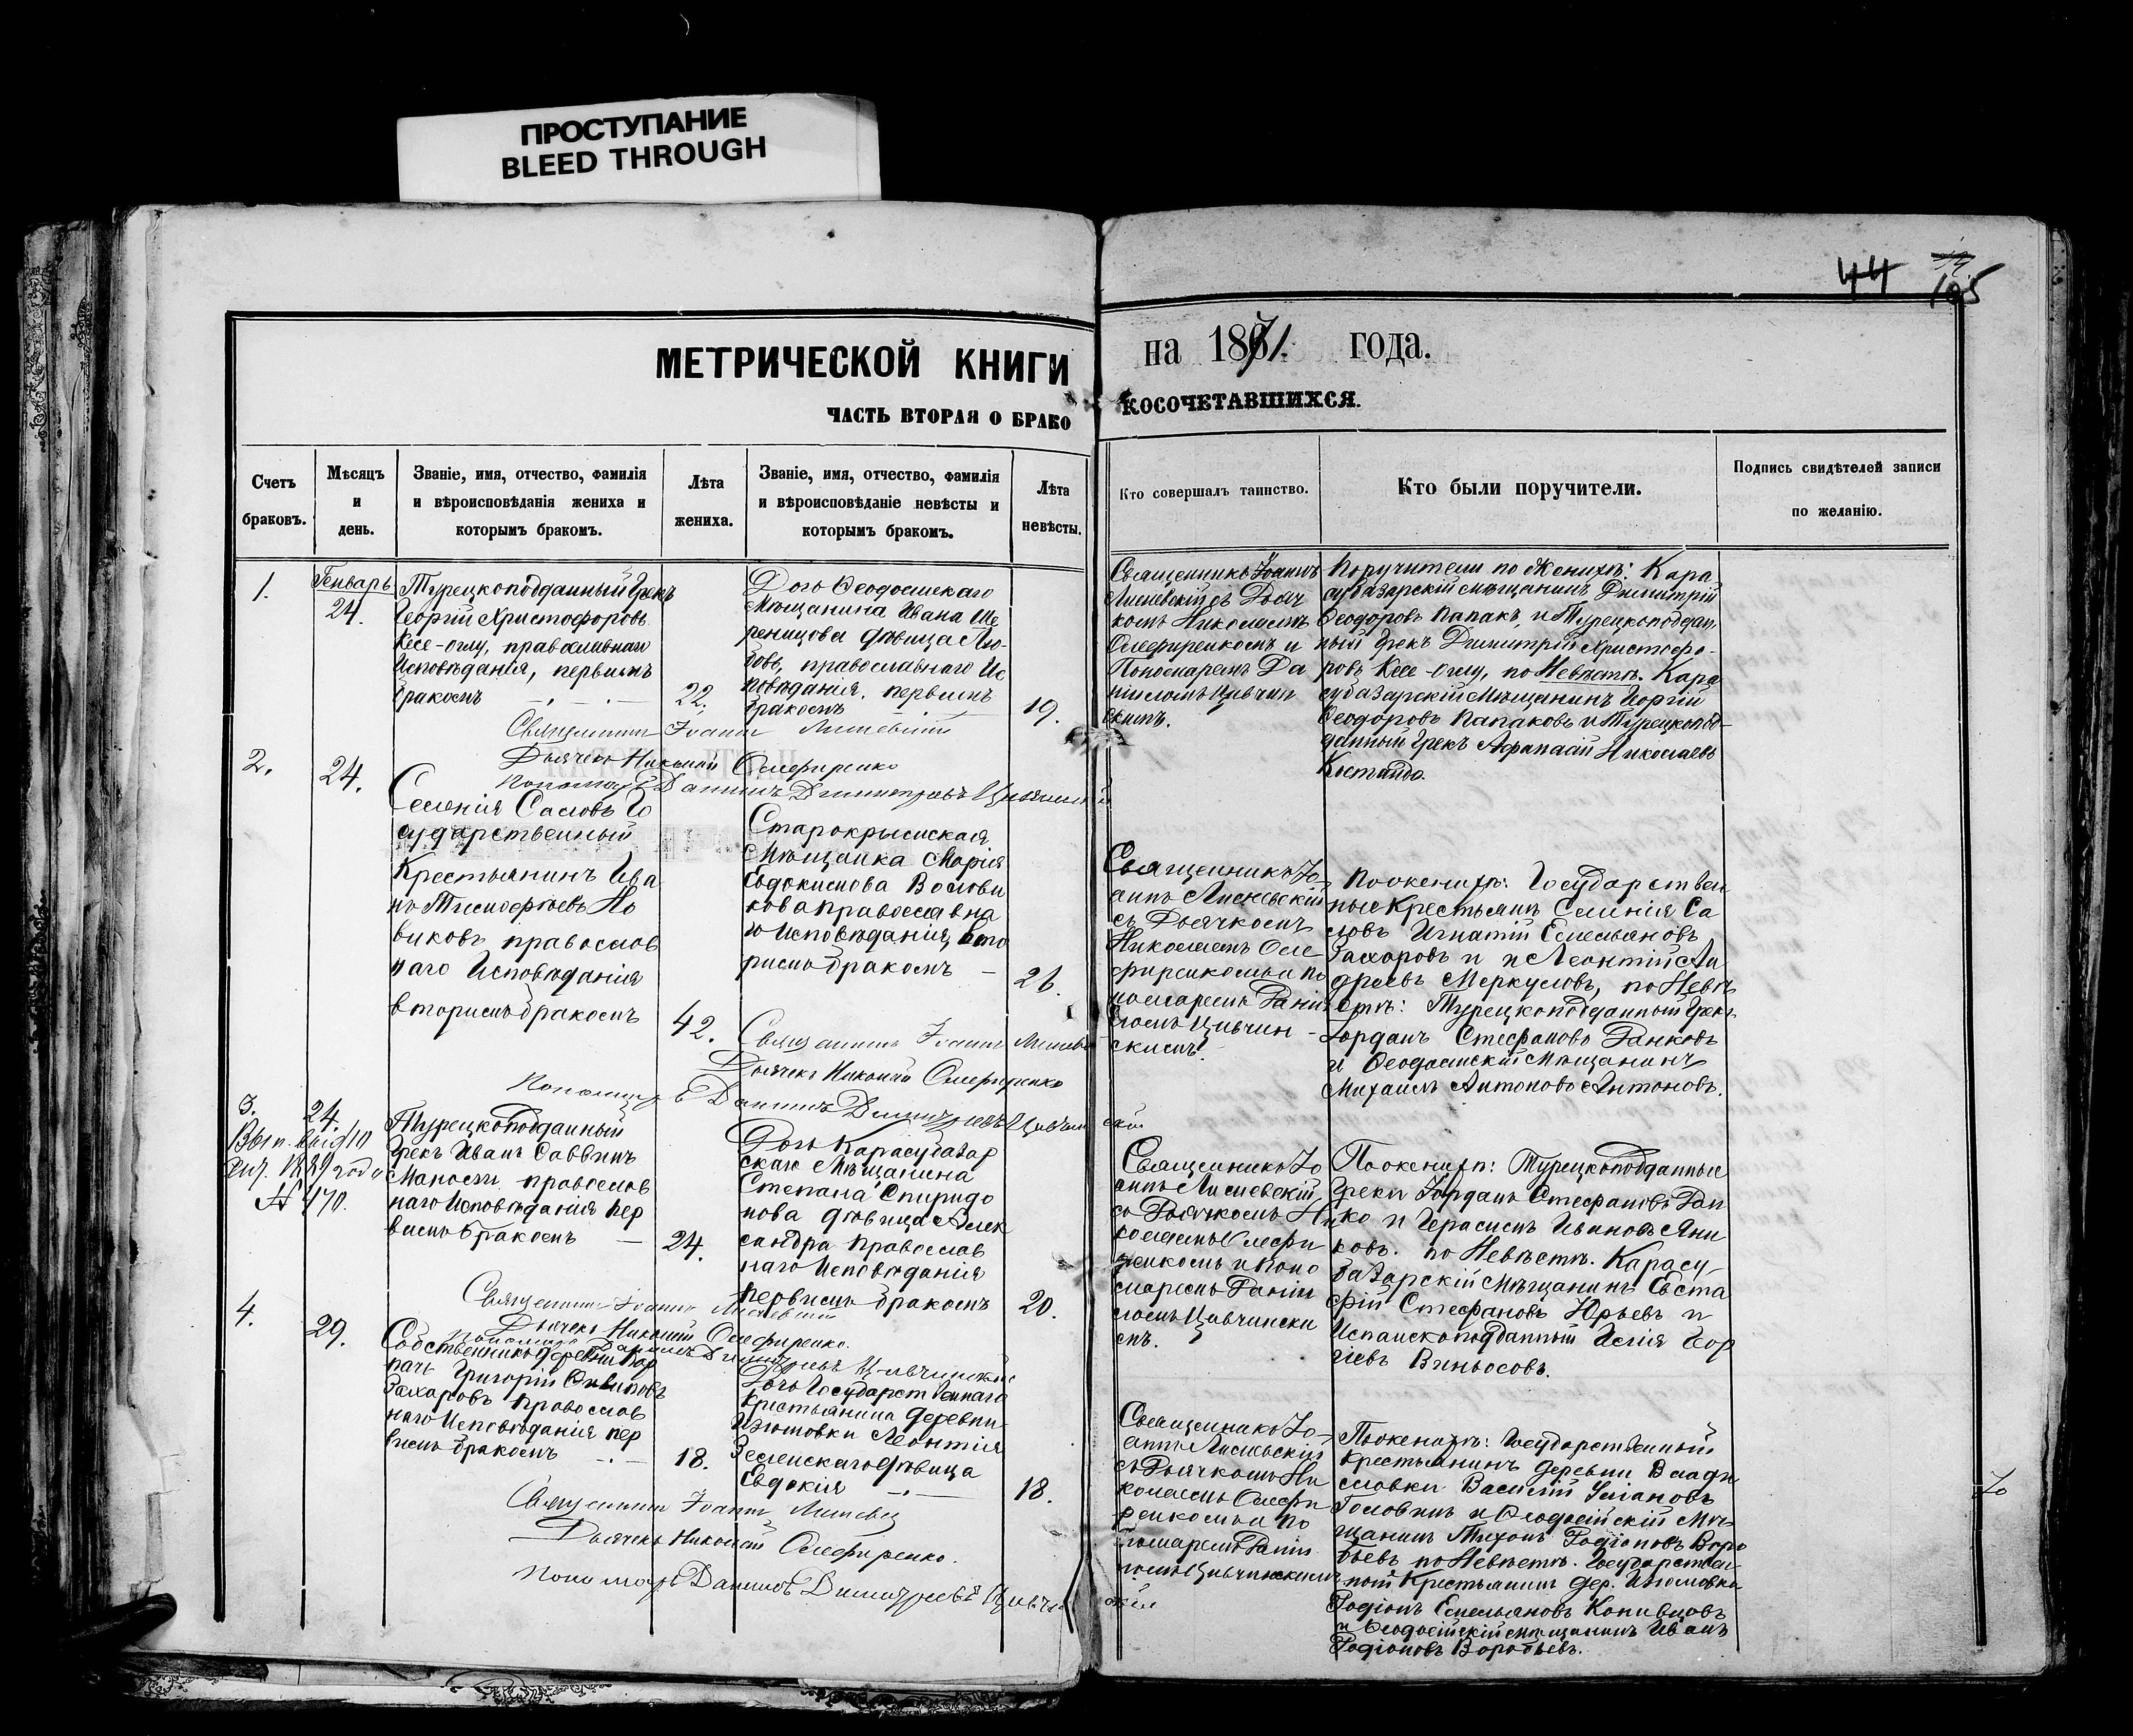 ПРОСТУПАНИЕ
BLEED THROUGH
44
105
МЕТРИЧЕСКОЙ КНИГИ
на 1871. года.
ЧАСТЬ ВТОРАЯ О БРАКО
КОСОЧЕТАВШИХСЯ.
Счетъ
браковъ.
Мѣсяцъ
и
день.
Званіе, имя, отчество, фамилія
и вѣроисповѣданія жениха и
которымъ бракомъ.
Лѣта
жениха.
Званіе, имя, отчество, фамилія
и вѣроисповѣданіе невѣсты и
которымъ бракомъ.
Лѣта
невѣсты.
Кто совершалъ таинство.
Кто были поручители.
Подпись свидѣтелей записи
по желанію.
1.
Генварь
24.
Турецкоподданный Грекъ
Георгій Христофоровъ
Кесе-оглу, православнаго
Исповѣданія, первымъ
бракомъ
22.
Дочь Ѳеодосійскаго
Мѣщанина Ивана
дѣвица Лю-
бовь, православнаго Ис
повѣданія, первымъ
бракомъ
19.
Священникъ Іоаннъ
Лисневскій съ Дьяч
комъ Николаемъ
Олефиренкомъ и
Пономаремъ Да
ніиломъ Цивчин
скимъ.
Поручители по Женихѣ: Кара
субазарскій мѣщанинъ Димитрій
Ѳеодоровъ Папакъ, и Турецкоподдан
ный Грекъ Димитрій Христофо-
ровъ Кесе-оглу, по Невѣстѣ. Кара
субазарскій Мѣщанинъ Георгій
Ѳеодоровъ Папаковъ и Турецкопод-
данный Грекъ Афанасій Николаевъ
Костанда.
Священникъ Іоаннъ Лисневскій
Дьячекъ Николай Олефиренко
Пономарь Даніилъ Димитріевъ Цивчинскій
2.
24.
Селенія Саловъ Го
сударственный
Крестьянинъ Ива
нъ Тимофѣевъ Но
виковъ православ
наго Исповѣданія
вторымъ бракомъ
42.
Старокрымская
Мѣщанка Марія
Евдокимова Волови
кова православна
го Исповѣданія, вто
рымъ бракомъ
26.
Священникъ Іо
аннъ Лисневскій
съ Дьячкомъ
Николаемъ Оле
фиренкомъ и по
номаремъ Даніи
ломъ Цивчин-
скимъ.
По женихѣ: Государствен
ные Крестьяне Селенія Са
ловъ Игнатій Емельяновъ
Захаровъ и Леонтій Ан
дреевъ Меркуловъ, по Невѣ
стѣ: Турецкоподданный Грекъ
Іорданъ Стефановъ Ранковъ
и Ѳеодосійскій Мѣщанинъ
Михаилъ Антоновъ Антоновъ.
Священникъ Іоаннъ Лисневскій
Дьячекъ Николай Олефиренко
Пономарь Даніилъ Димитріевъ Цивчинскій
3.
24.
1889 года
№ 470.
Турецкоподданный
Грекъ Иванъ Саввинъ
православ
наго Исповѣданія пер
вымъ бракомъ
24.
Дочь Карасубазар
скаго Мѣщанина
Степана Спиридо
нова дѣвица Алек
сандра Православ
наго Исповѣданія
первымъ бракомъ
20.
Священникъ Іо
аннъ Лисневскій
съ Дьячкомъ Ни
колаемъ Олефи
ренкомъ и Поно
маремъ Даніи
ломъ Цивчински
мъ.
По женихѣ: Турецкоподданные
Греки Іорданъ Стефановъ Ран
ко и Герасимъ Ивановъ Яни
ковъ. по Невѣстѣ. Карасу-
базарскій мѣщанинъ Евста
фій Стефановъ Юрьевъ и
Испанскоподданный Илія Геор
гіевъ Виньосовъ.
Священникъ Іоаннъ Лисневскій
Дьячекъ Николай Олефиренко.
Пономарь Даніилъ Димитріевъ Цивчинскій
4.
29.
Собственникъ деревни
Григорій
Захаровъ Православ
наго Исповѣданія пер
вымъ бракомъ
18.
Дочь Государственнаго
Крестьянина деревни
Изюмовки Леонтія
Зеленскаго дѣвица
Евдокія
18.
Священникъ Іо-
аннъ Лисневскій
съ Дьячкомъ Ни
колаемъ Олефи
ренкомъ и По
номаремъ Даніи
ломъ Цивчинскимъ
По женихѣ: Государственный
Крестьянинъ деревни Влади
славки Василій Улановъ
Головинъ и Ѳеодосійскій Мѣ-
щанинъ Тихонъ Родіоновъ Воро
бьевъ по Невѣстѣ. Государствен-
ный Крестьянинъ дер. Изюмовка
Родіонъ Емельяновъ Копивцовъ
и Ѳеодосійскій мѣщанинъ Иванъ
Родіоновъ Воробьевъ.
Священникъ Іоаннъ Лисневскій
Дьячекъ Николай Олефиренко.
Пономарь Даніилъ Димитріевъ Цивчинскій